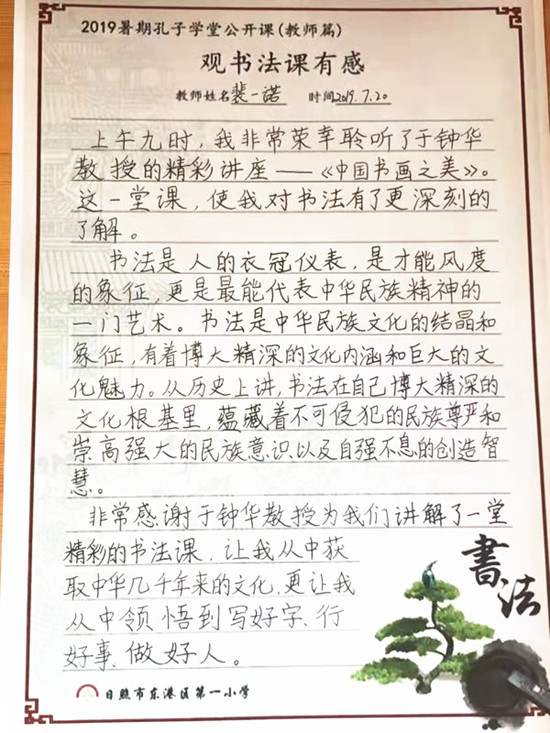 2019暑期孔子学堂公开课(教师篇)
观书法课有感
教师姓名裴一诺 时间2019.7.20
上午九时，我非常荣幸聆听了于钟华
教授的精彩讲座——《中国书画之美》。
这一堂课，使我对书法有了更深刻的
了解。
书法是人的衣冠仪表，是才能风度
的象征，更是最能代表中华民族精神的
一门艺术。书法是中华民族文化的结晶和
象征，有着博大精深的文化内涵和巨大的文
化魅力。从历史上讲，书法在自己博大精深的
文化根基里，蕴藏着不可侵犯的民族尊严和
崇高强大的民族意识以及自强不息的创造智
慧。
非常感谢于钟华教授为我们讲解了一堂
精彩的书法课．让我从中获
取中华几千年来的文化，更让我
从中领悟到写好字、行
好事、做好人。
書法
日照市东港区第一小学